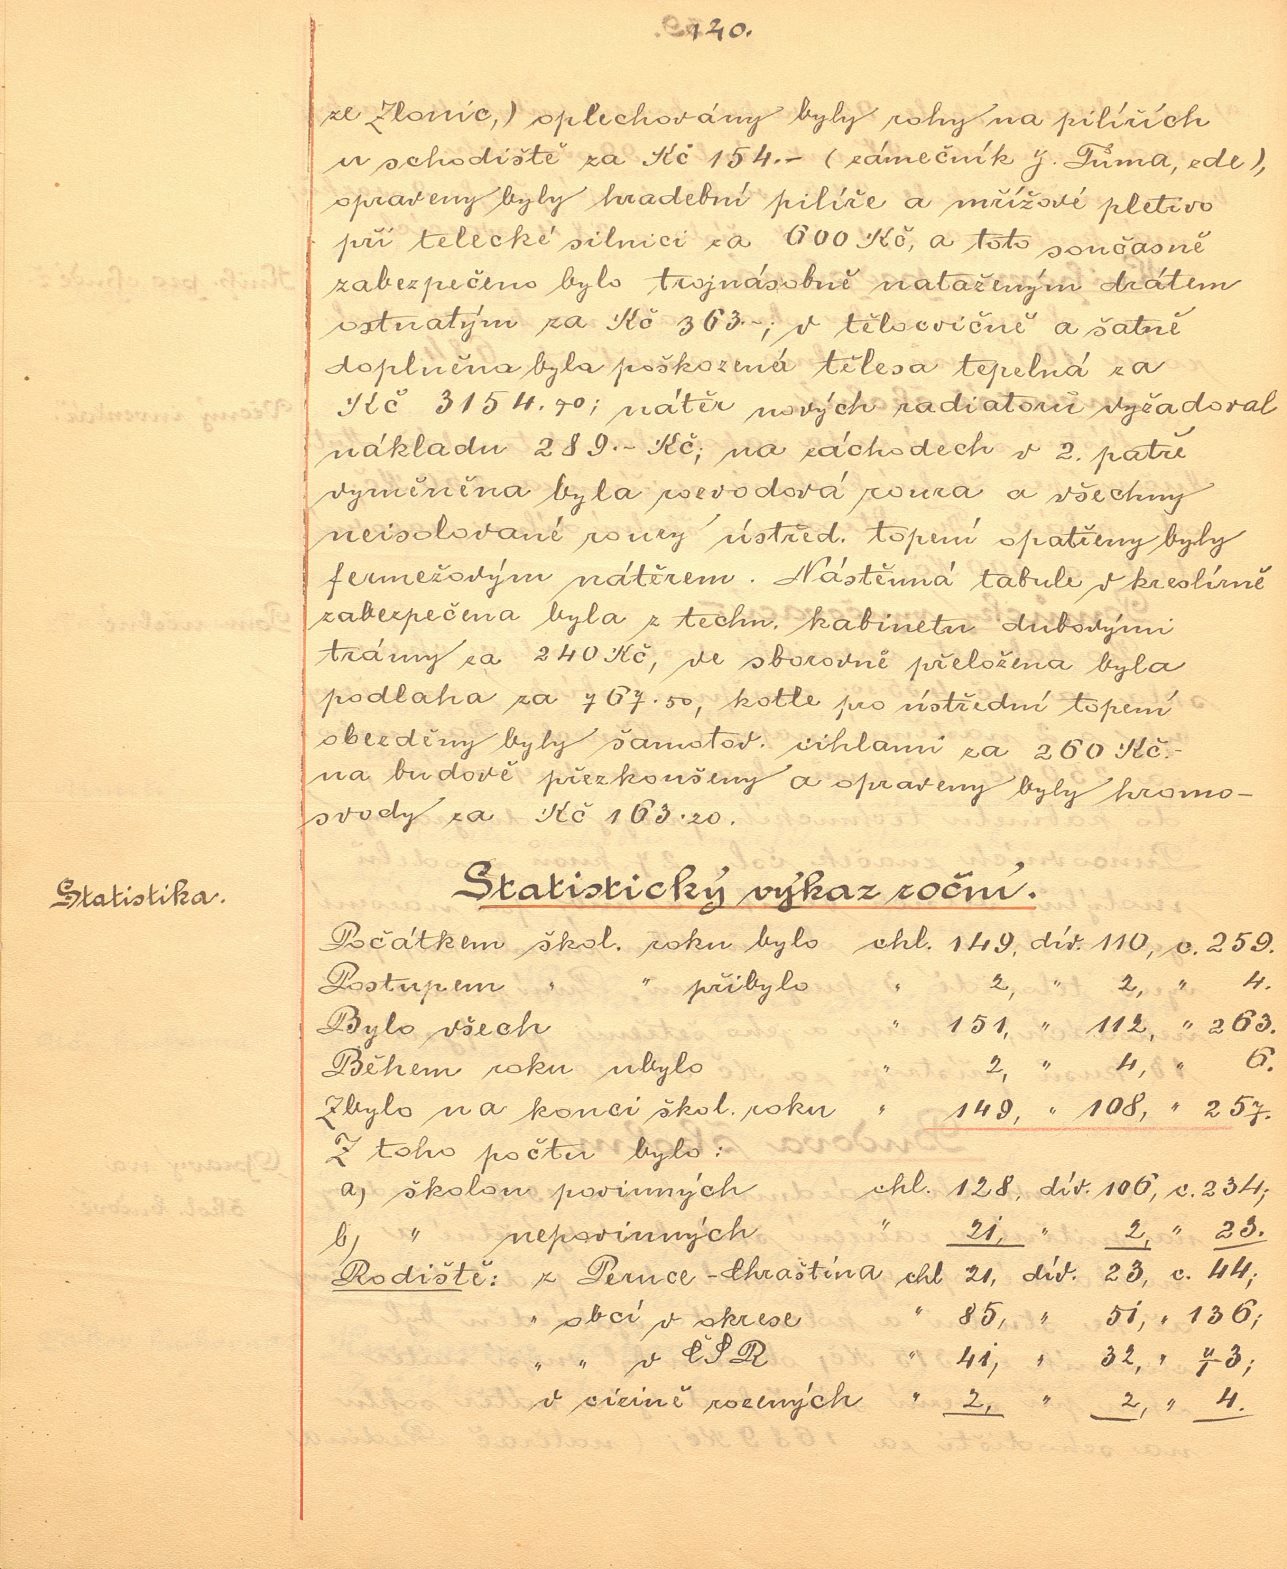 120.
ze Zlonic,) oplechovány byly rohy na pilířích
u schodiště za Kč 154.- (zámečník J. Tůma, zde),
opraveny byly hradební pilíře a mřížové pletivo
při telecké silnici za 600 Kč, a toto současně
zabezpečeno bylo trojnásobně nataženým drátem
ostnatým za Kč 363.-; v tělocvičně a šatně
doplněna byla poškozená tělesa tepelná za
Kč 3154.70; nátěr nových radiatorů vyžadoval
nákladu 289.- Kč; na záchodech v 2. patře
vyměněna byla rozvodová roura a všechny
neisolované roury ústřed. topení opatřeny byly
fermežovým nátěrem. Nástěnná tabule v kreslírně
zabezpečena byla z techn. kabinetu dubovými
trámy za 240 Kč, ve sborovně přeložena byla
podlaha za 767.50, kotle pro ústřední topení
obezděny byly šamotov. cihlami za 260 Kč.-
na budově přezkoušeny a opraveny byly hromo-
svody za Kč 163.20.
Statistika.
Statistický výkaz roční.
Počátkem škol. roku bylo chl. 149, dív. 110, c. 259.
Postupem " " přibylo " 2, " 2, " 4.
Bylo všech " 151, " 112, " 263.
Během roku ubylo " 2, " 4, " 6.
Zbylo na konci škol. roku " 149, " 108, " 257.
Z toho počtu bylo:
a) školou povinných chl. 128, dív. 106, c. 234;
b) " nepovinných " 21, " 2, " 23.
Rodiště: z Peruce-Chraštína chl 21, dív. 23, c. 44;
" obcí v okrese " 85, " 51, " 136;
" " v ČSR " 41, " 32, " 73;
v cizině rozených " 2, " 2, " 4.